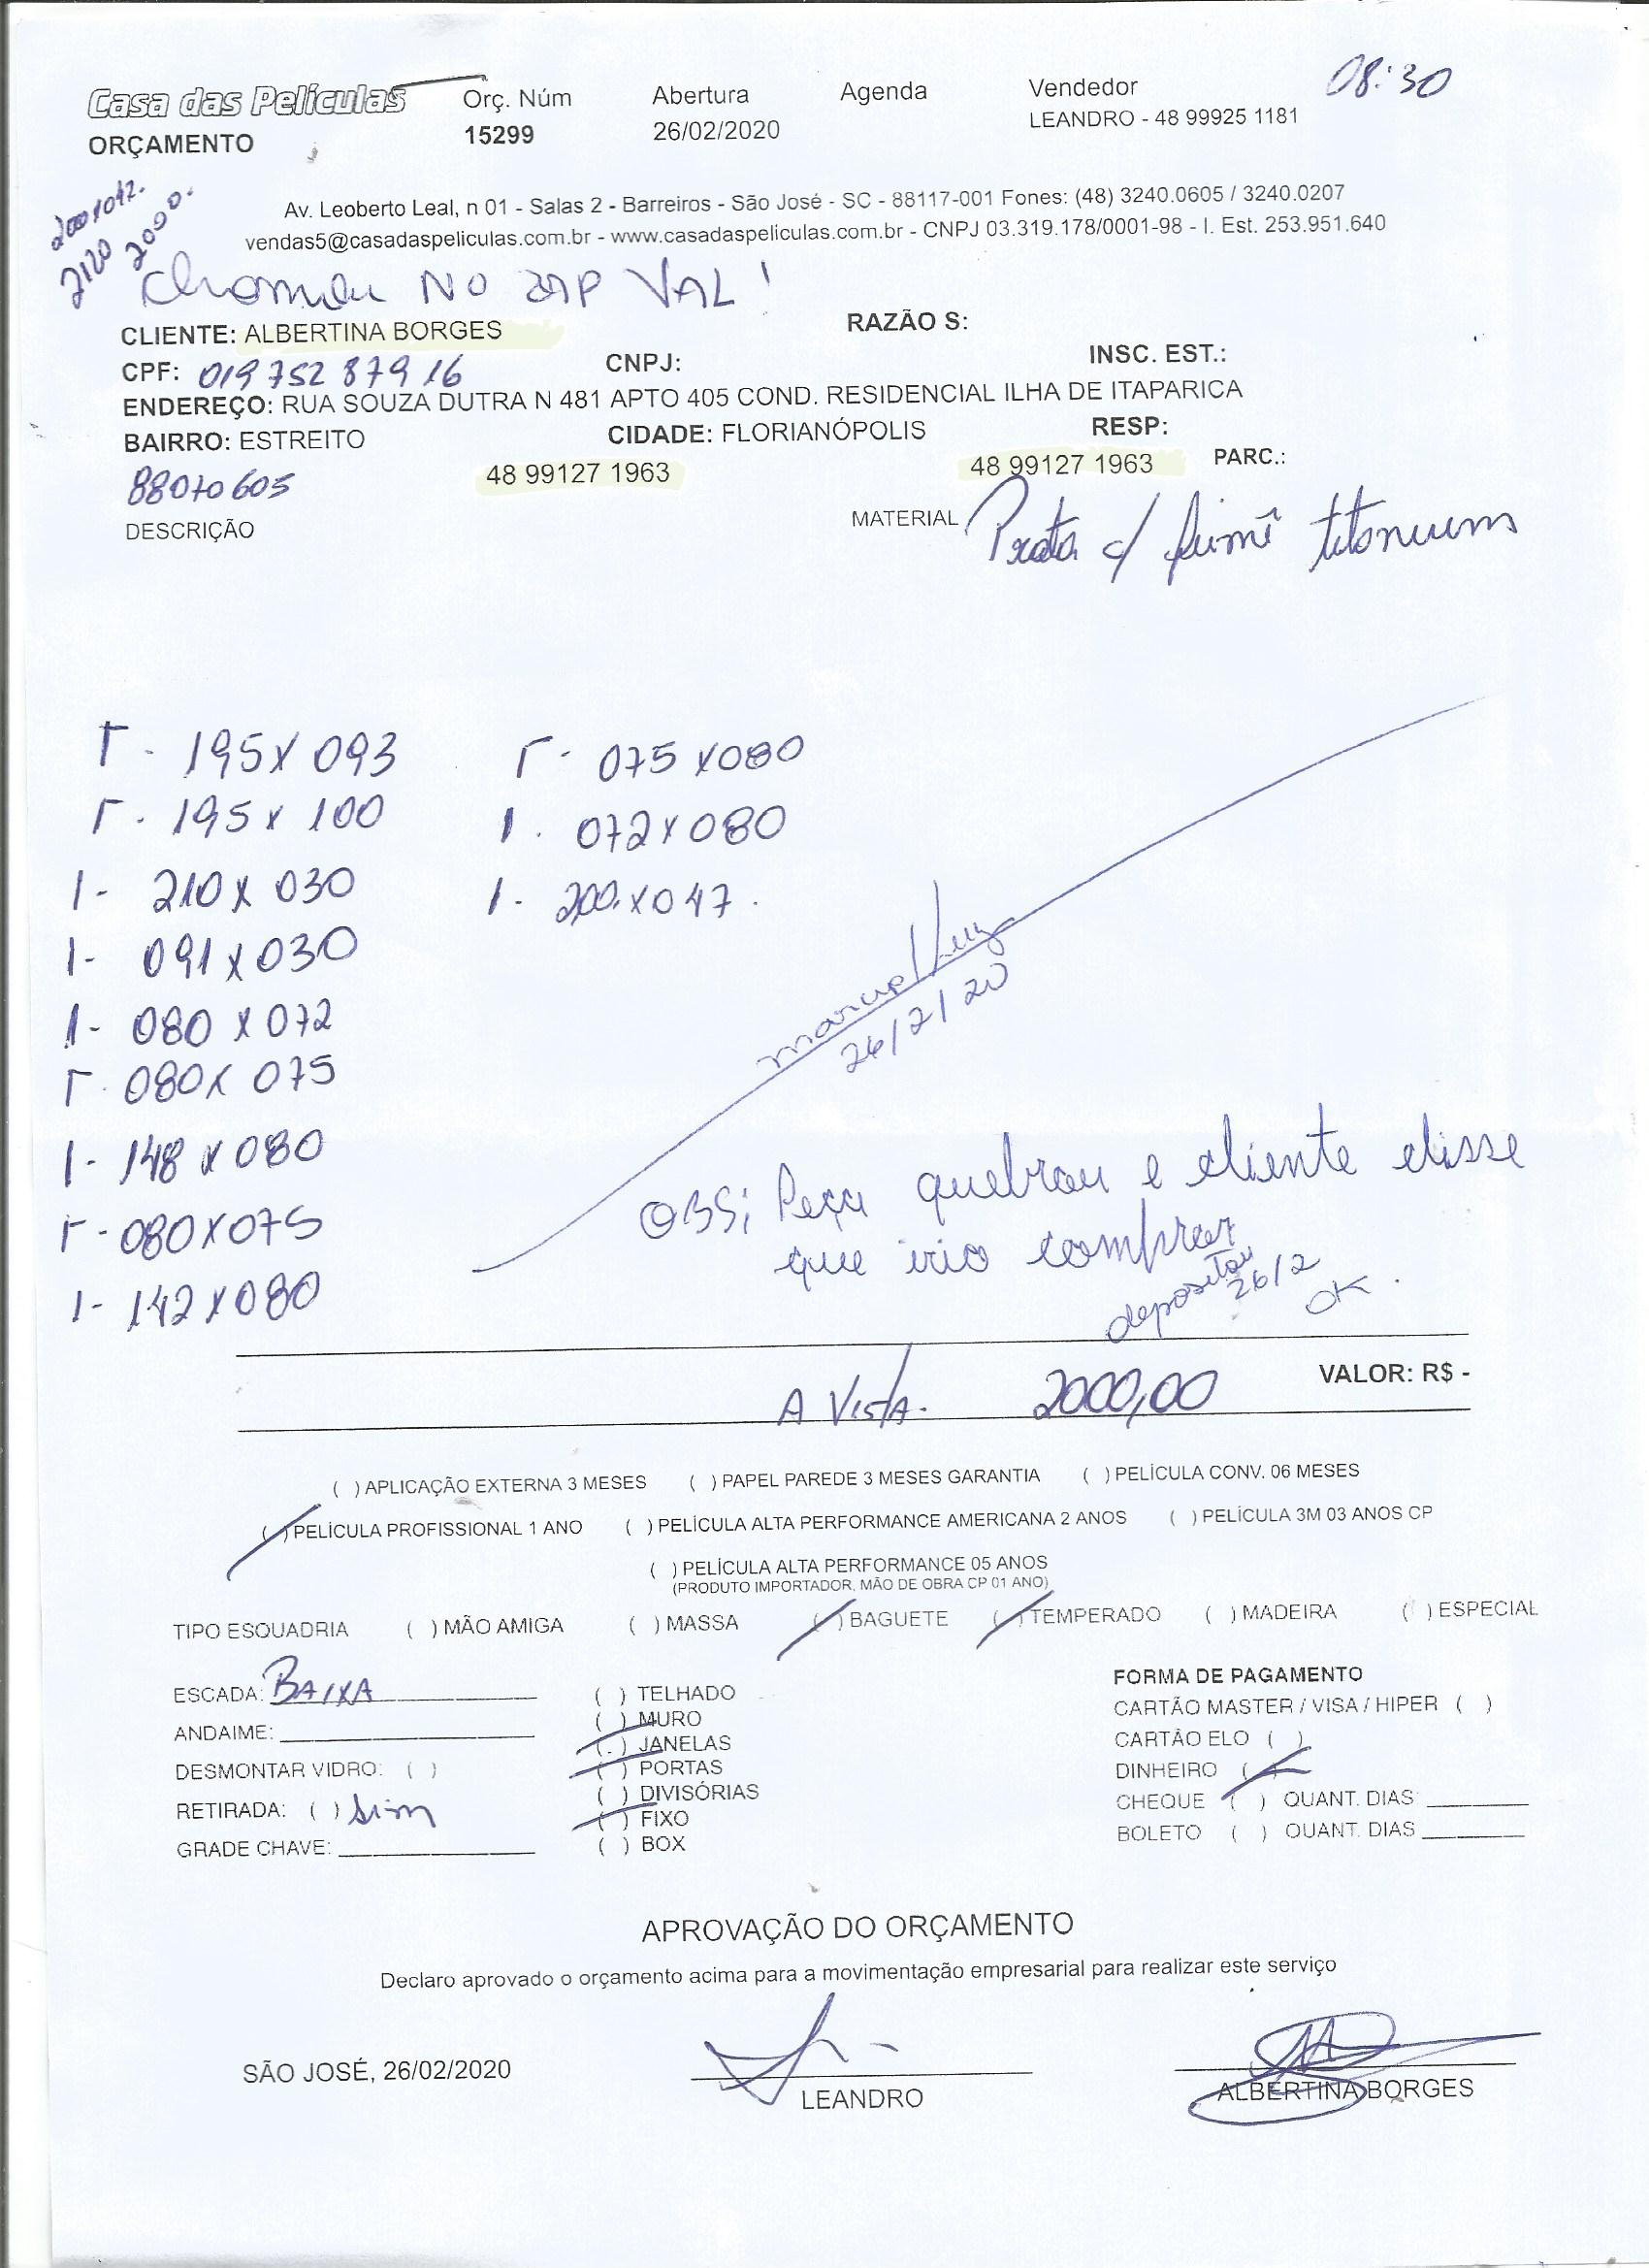 Casa das Películas Orç. Núm Abertura Agenda Vendedor 08:30
ORÇAMENTO 15299 26/02/2020 LEANDRO - 48 99925 1181
2120 2000.
Av. Leoberto Leal, n 01 - Salas 2 - Barreiros - São José - SC - 88117-001 Fones: (48) 3240.0605 / 3240.0207
vendas5@casadaspeliculas.com.br - www.casadaspeliculas.com.br - CNPJ 03.319.178/0001-98 - I. Est. 253.951.640
NO ZAP VAL!
CLIENTE: ALBERTINA BORGES RAZÃO S:
CPF: 019 752 879 16 CNPJ: INSC. EST.:
ENDEREÇO: RUA SOUZA DUTRA N 481 APTO 405 COND. RESIDENCIAL ILHA DE ITAPARICA
BAIRRO: ESTREITO CIDADE: FLORIANÓPOLIS RESP:
88070605 48 99127 1963 48 99127 1963 PARC.:
DESCRIÇÃO MATERIAL Prata c/ fumê titanium
1- 195X093 1- 075X080
1- 195X100 1- 072X080
1- 210X030 1- 200X047
1- 091X030
1- 080X072
1- 080X075
1- 148X080
1- 080X075
1- 142X080
26/2/20
OBS; Peça quebrou e cliente disse
que irio comprar
depositou
26/2
OK.
A VISTA. 2000,00 VALOR: R$ -
( ) APLICAÇÃO EXTERNA 3 MESES ( ) PAPEL PAREDE 3 MESES GARANTIA ( ) PELÍCULA CONV. 06 MESES
( ) PELÍCULA PROFISSIONAL 1 ANO ( ) PELÍCULA ALTA PERFORMANCE AMERICANA 2 ANOS ( ) PELÍCULA 3M 03 ANOS CP
( ) PELÍCULA ALTA PERFORMANCE 05 ANOS
(PRODUTO IMPORTADOR, MÃO DE OBRA CP 01 ANO)
TIPO ESQUADRIA ( ) MÃO AMIGA ( ) MASSA ( ) BAGUETE ( ) TEMPERADO ( ) MADEIRA ( ) ESPECIAL
ESCADA: BAIXA
ANDAIME:
DESMONTAR VIDRO: ( )
RETIRADA: ( ) Sim
GRADE CHAVE:
( ) TELHADO
( ) MURO
( ) JANELAS
( ) PORTAS
( ) DIVISÓRIAS
( ) FIXO
( ) BOX
FORMA DE PAGAMENTO
CARTÃO MASTER / VISA / HIPER ( )
CARTÃO ELO ( )
DINHEIRO ( )
CHEQUE ( ) QUANT. DIAS
BOLETO ( ) QUANT. DIAS
APROVAÇÃO DO ORÇAMENTO
Declaro aprovado o orçamento acima para a movimentação empresarial para realizar este serviço
SÃO JOSÉ, 26/02/2020
LEANDRO
ALBERTINA BORGES